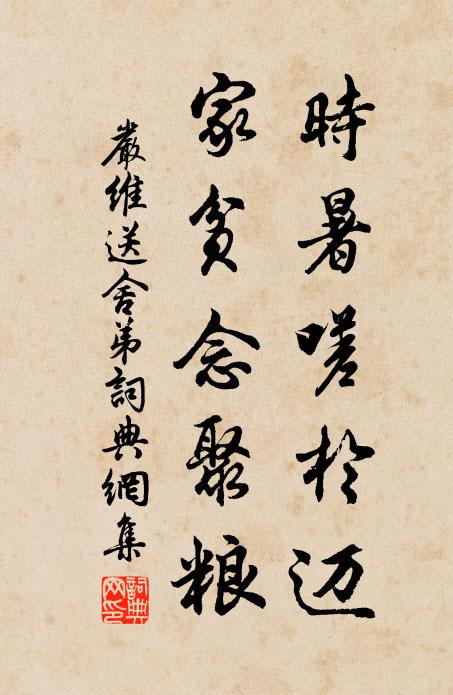 時暑嗟於迈
家贫念聚粮
嚴維送舍弟詞典網集
詞典網印